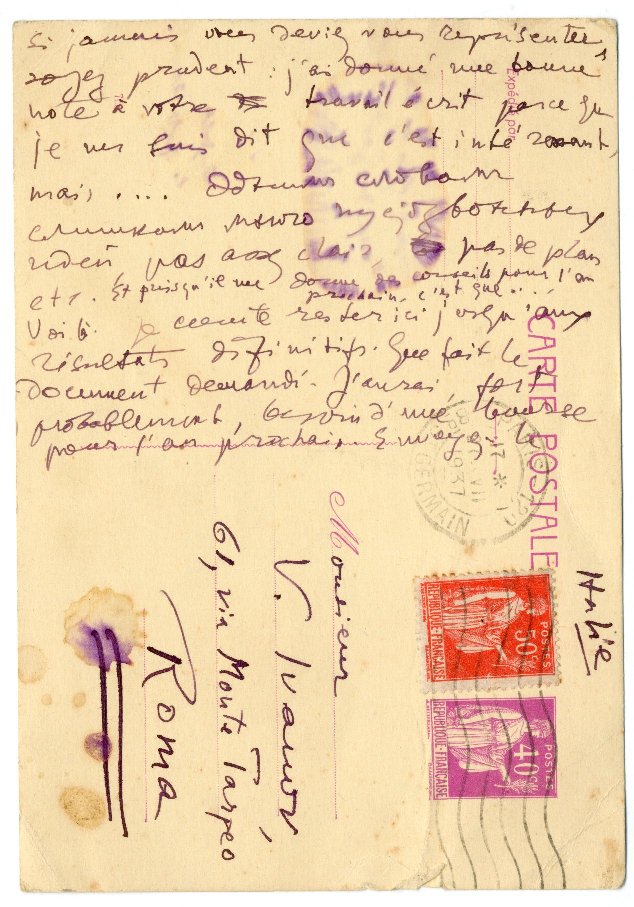 si jamais vous deviez vous représenter
soyez prudent : j'ai donné une bonne
note à votre travail écrit parce que
je me suis dit que c'est intéressant,
mais .... Одним словом
слишком много
pas assez clair, pas de plan
etc. Et puisqu'il me donne des conseils pour l'an
prochain, c'est que ....
Voilà. Je compte rester ici jusqu'aux
résultats définitifs. Que fait le
document demandé. J'aurai fort
probablement, besoin d'une bourse
pour l'an prochain.
Expédié par
CARTE POSTALE
PARIS
VII
1937
GERMAIN
Italie
Monsieur
V. Ivanov,
61, via Monte Tarpeo
Roma
POSTES
50c
REPUBLIQUE-FRANÇAISE
POSTES
40c
REPUBLIQUE-FRANÇAISE